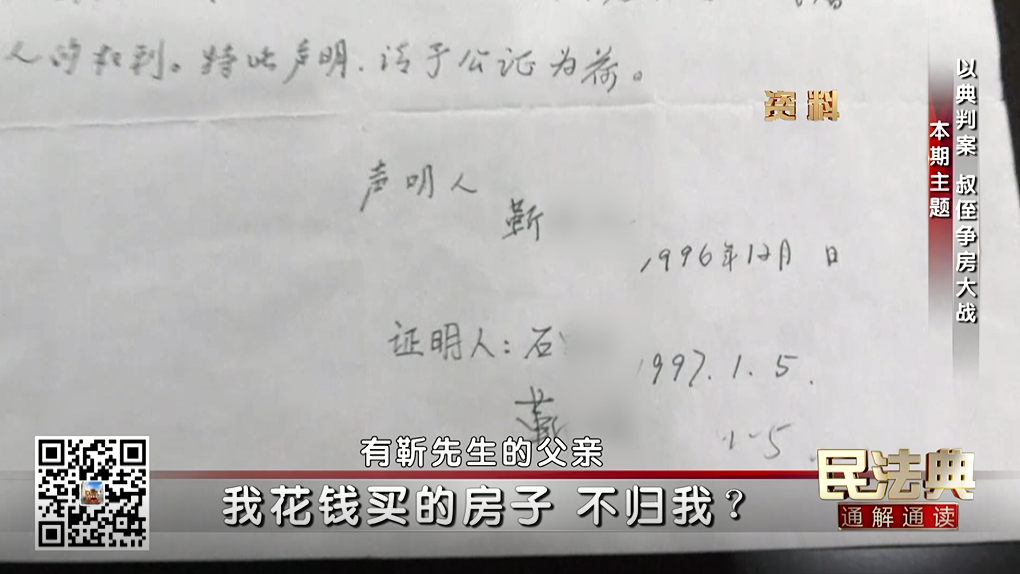 人的权利。特此声明，请于公证为荷。
资料
声明人
靳
1996年12月 日
证明人：石
1997.1.5.
靳
1-5
以典判案 叔侄争房大战
本期主题
有靳先生的父亲
我花钱买的房子 不归我？
民法典
通解通读